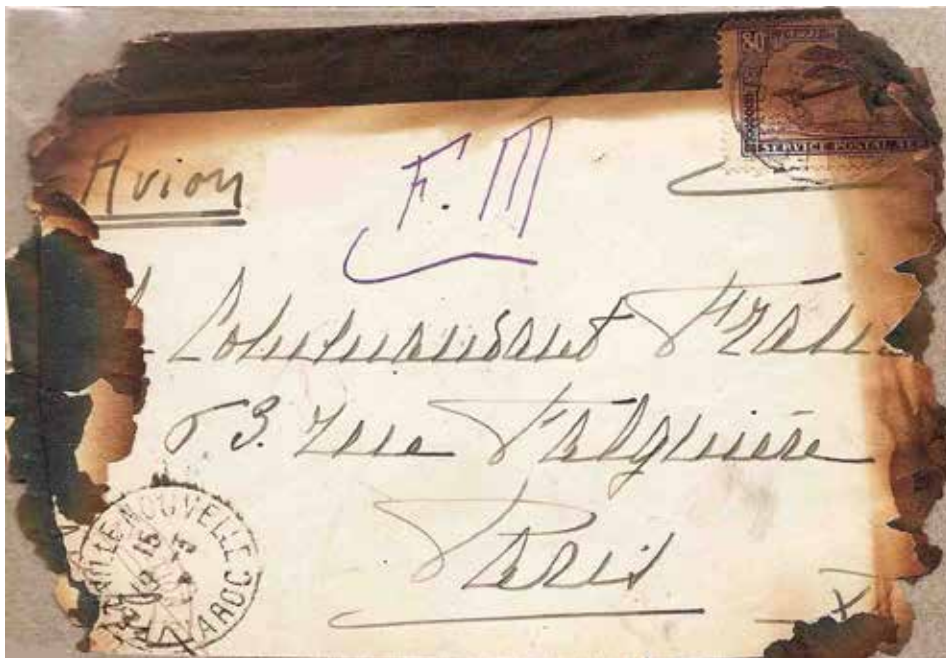 80
SERVICE POSTAL AER
Avion
F. M
Commandant Fran
63. rue Falguière
Paris
VILLE-NOUVELLE
15
MAROC